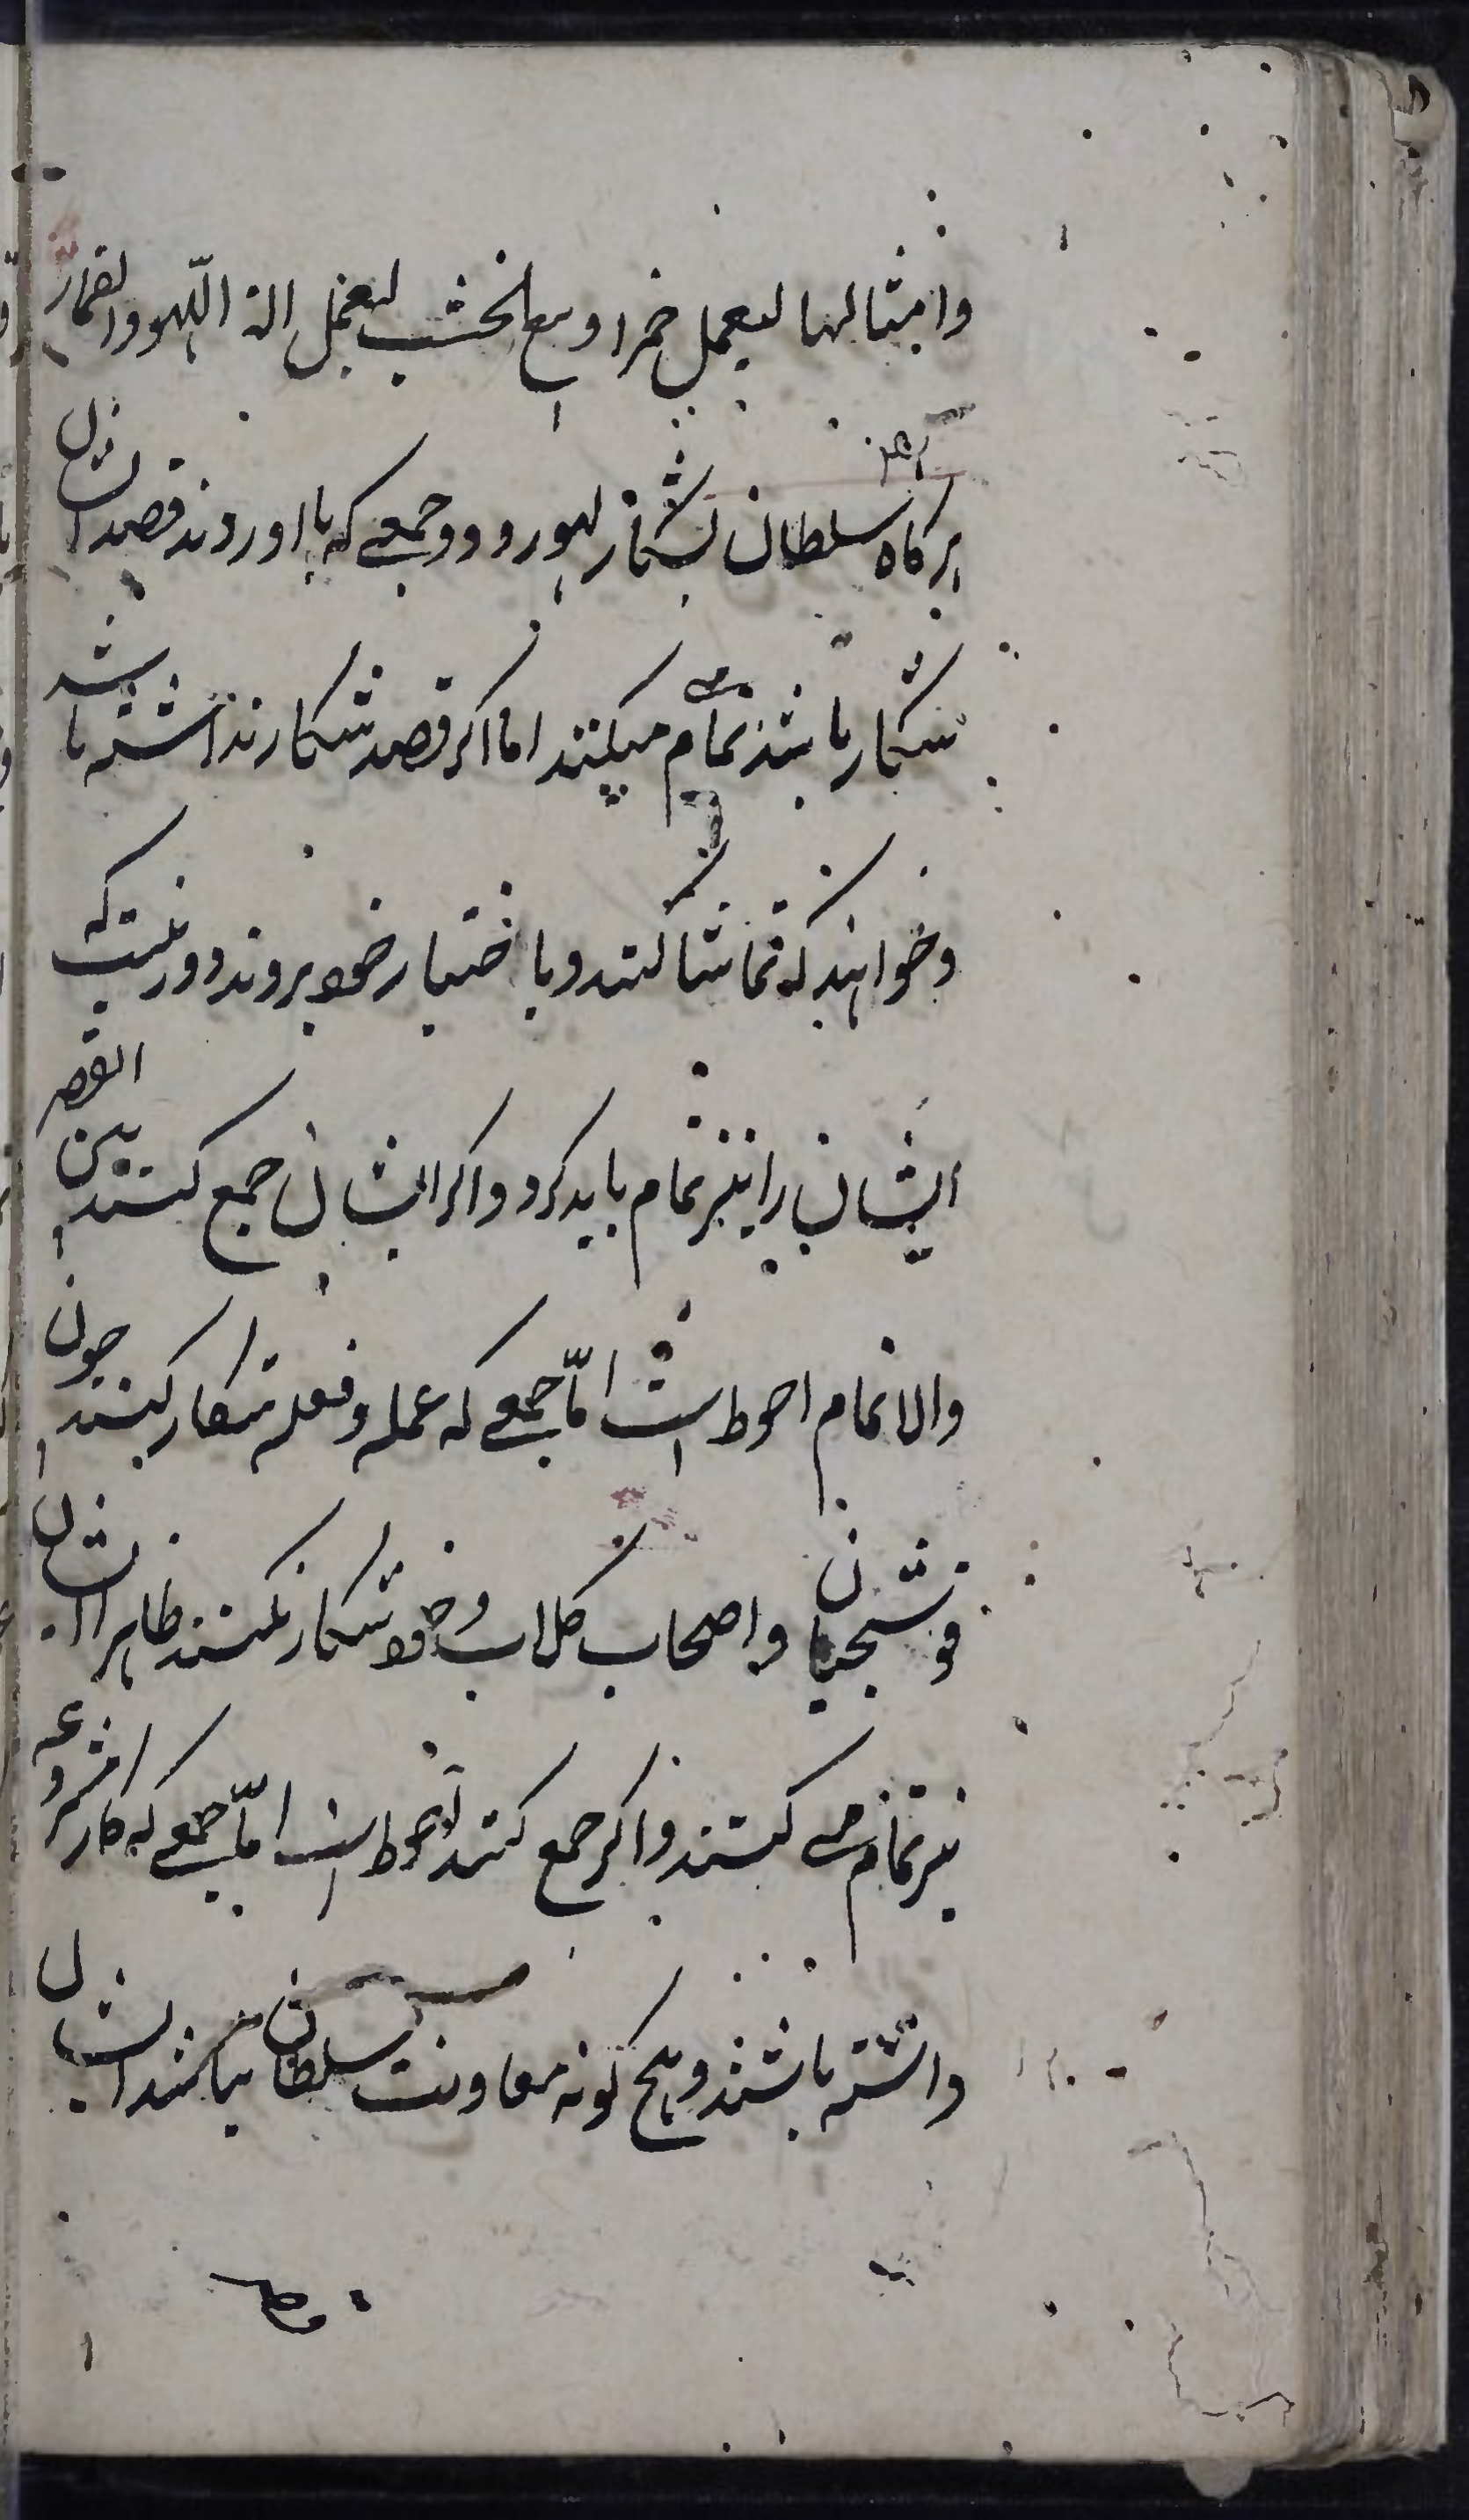 وامثالها ليعمل خمرا و بيع الخشب ليعمل الة اللّهو والقمار
هر کاه سلطان بشکار لهو رود و جمعی که با او روند قصد ایشان
شکار باشد تمام میکنند اما اکر قصد شکار نداشته باشند
و خواهند که تماشا کنند و باختیار خود بروند دور نیست که
ایشان را نیز تمام باید کرد و اکر ایشان جمع کنند بین القصر
والاتمام احوط است امّا جمعی که عمله و فعله شکار کنند چون
قوشچیان و اصحاب کلاب و خود شکار نکنند ظاهرا ایشان
نیز تمام می کنند و اکر جمع کنند احوط است امّا جمعی که کار مشروعه
داشته باشند و هیچ کونه معاونت سلطان نکنند ایشان